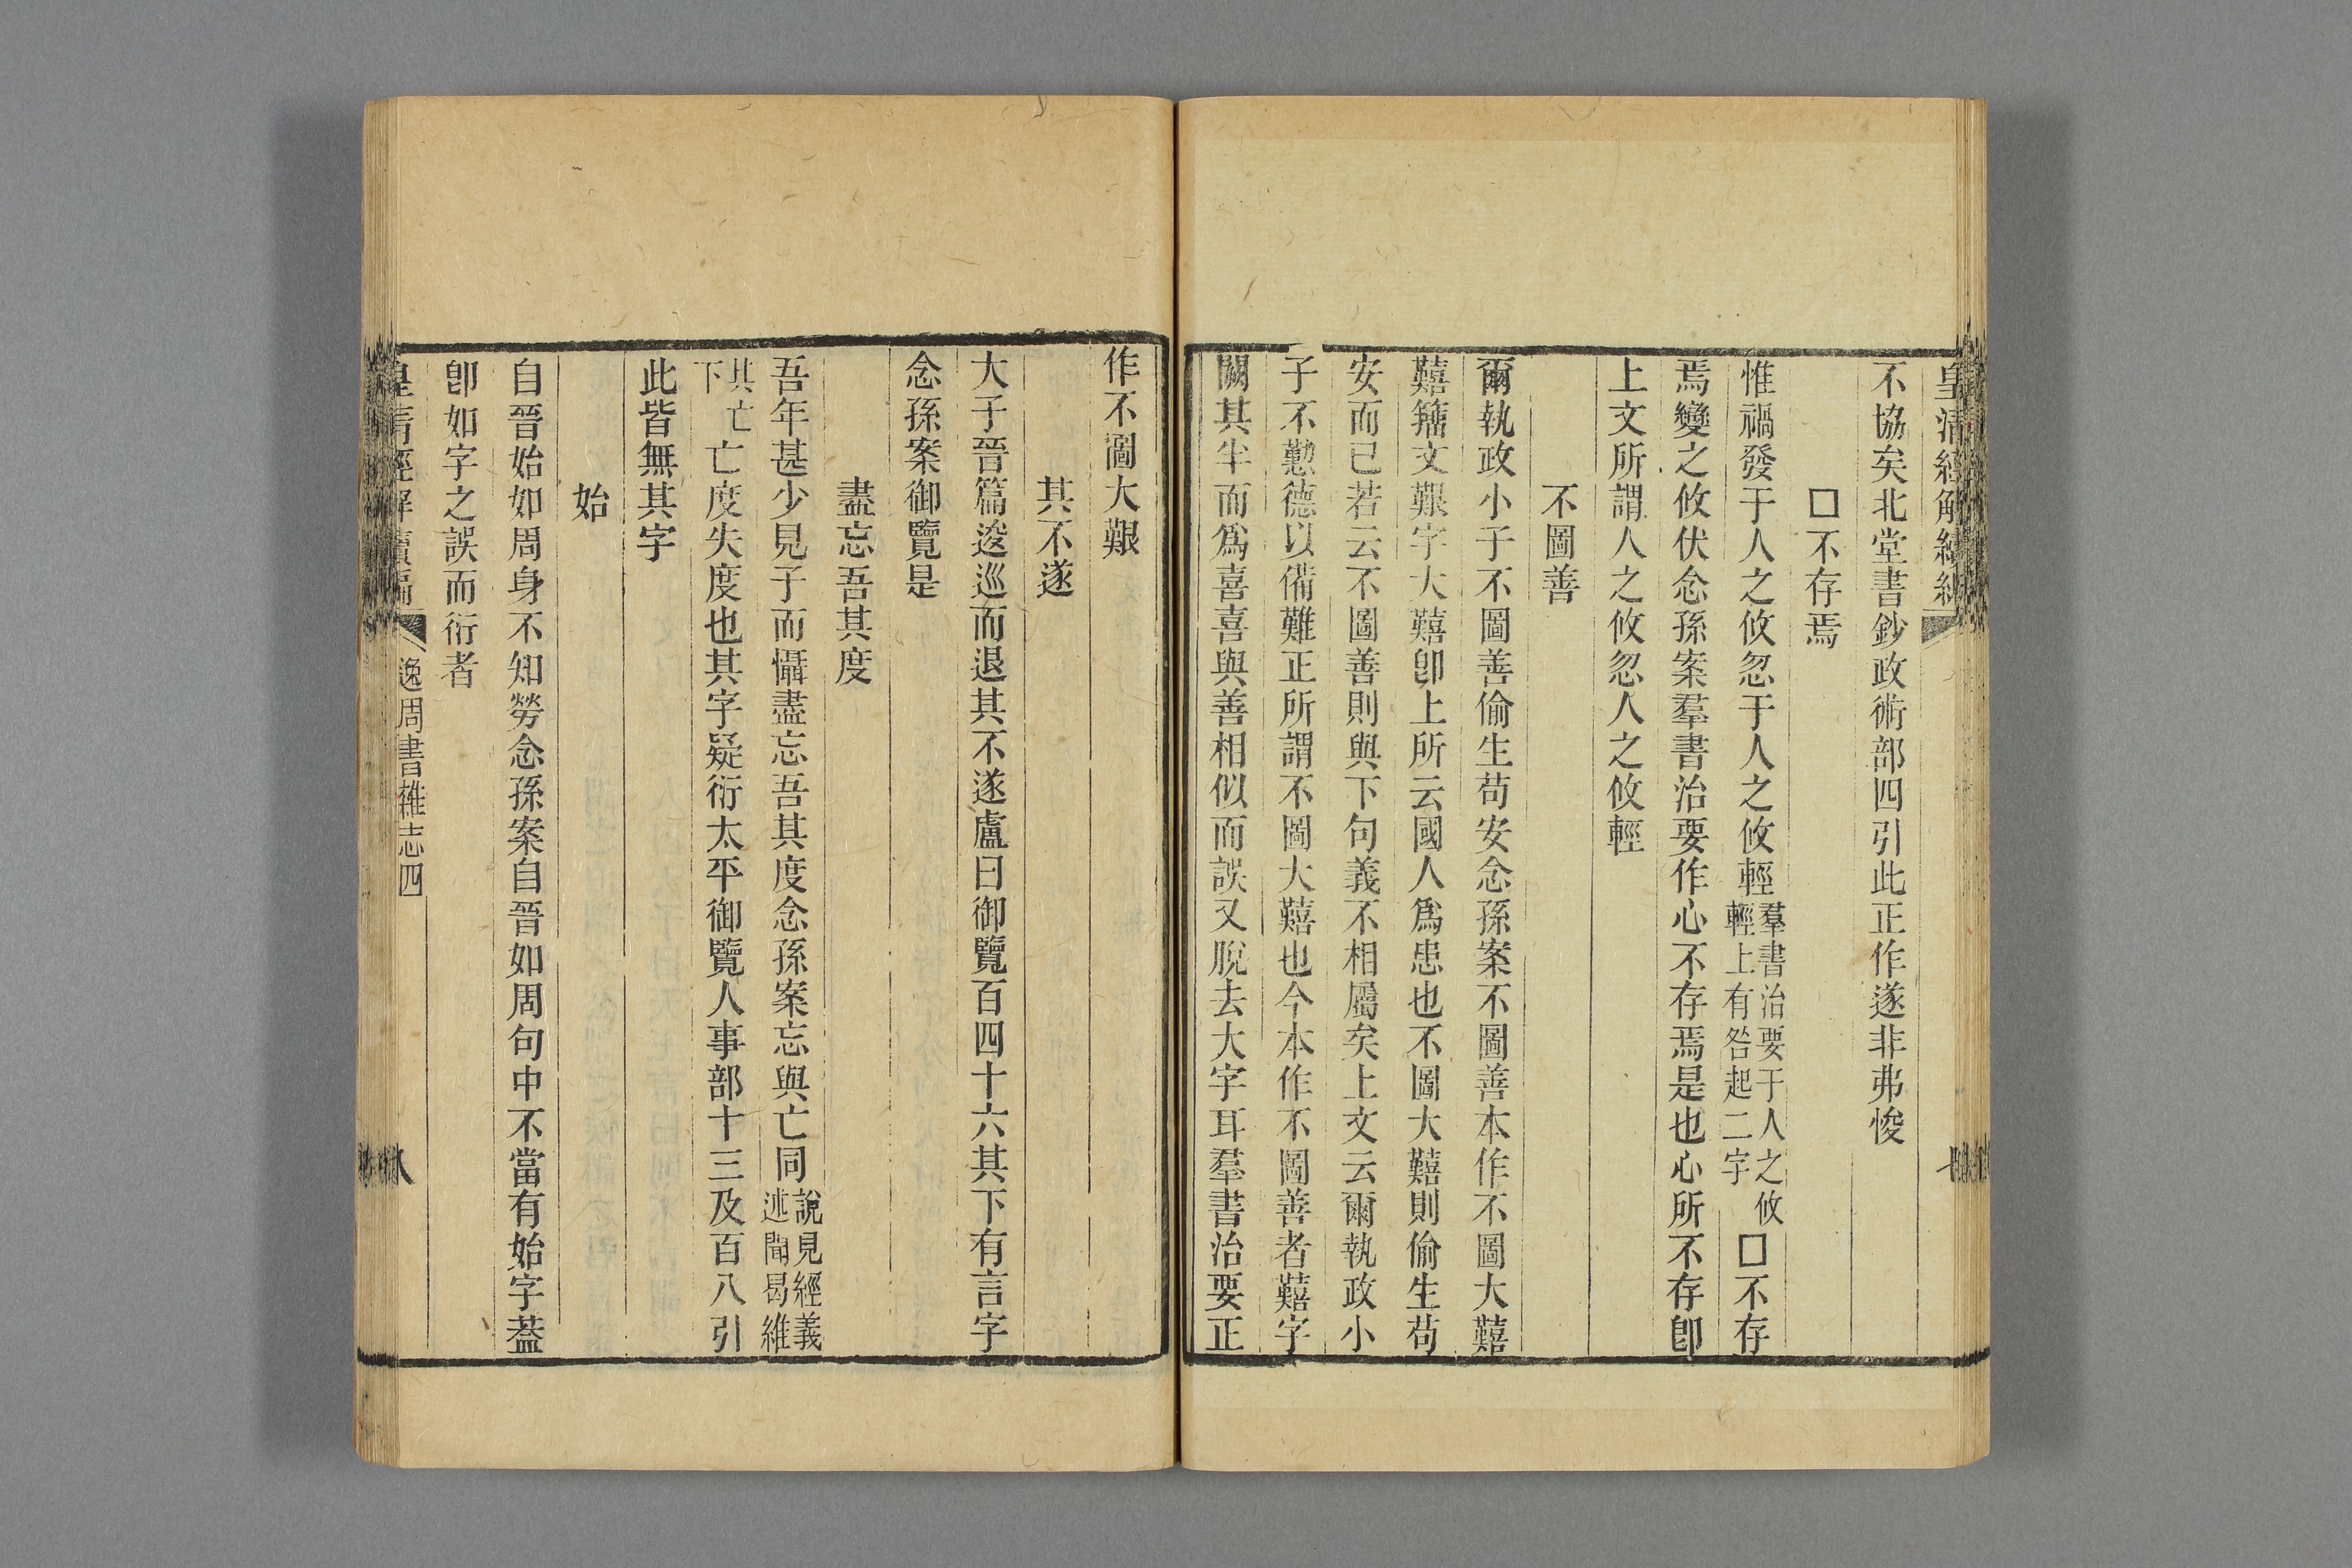 皇清經解續編
不協矣北堂書鈔政術部四引此正作遂非弗悛
□不存焉
惟禍發于人之攸忽于人之攸輕羣書治要于人之攸輕上有咎起二字□不存
焉變之攸伏念孫案羣書治要作心不存焉是也心所不存卽
上文所謂人之攸忽人之攸輕
不圖善
爾執政小子不圖善偷生苟安念孫案不圖善本作不圖大囏
囏籒文艱字大囏卽上所云國人爲患也不圖大囏則偷生苟
安而已若云不圖善則與下句義不相屬矣上文云爾執政小
子不懃德以備難正所謂不圖大囏也今本作不圖善者囏字
闕其半而爲喜喜與善相似而誤又脫去大字耳羣書治要正
作不圖大艱
其不遂
大子晉篇逡巡而退其不遂盧曰御覽百四十六其下有言字
念孫案御覽是
盡忘吾其度
吾年甚少見子而懾盡忘吾其度念孫案忘與亡同說見經義述聞曷維
其亡下亡度失度也其字疑衍太平御覽人事部十三及百八引
此皆無其字
始
自晉始如周身不知勞念孫案自晉如周句中不當有始字葢
卽如字之誤而衍者
皇淸經解續編 逸周書雜志四 八